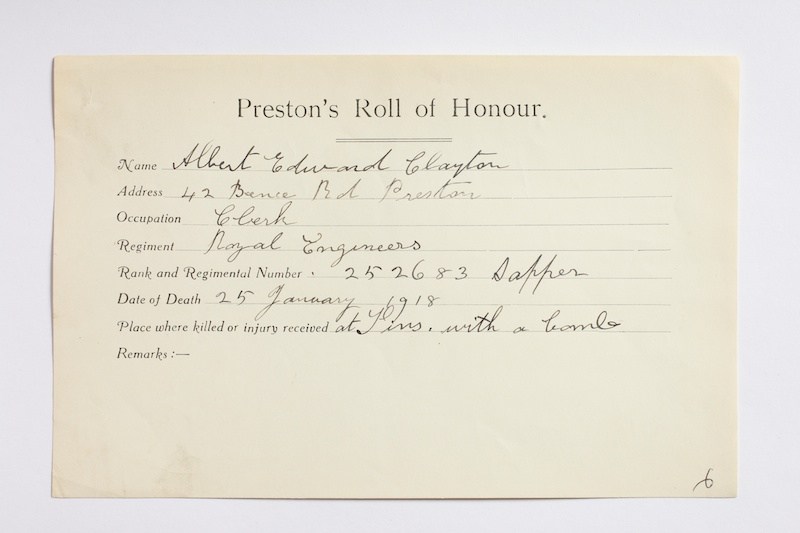 Preston's Roll of Honour.
Name Albert Edward Clayton
Address 42 Bence Rd Preston
Occupation Clerk
Regiment Royal Engineers
Rank and Regimental Number . 252683 Sapper
Date of Death 25 January 1918
Place where killed or injury received at . with a bomb
Remarks :—
6